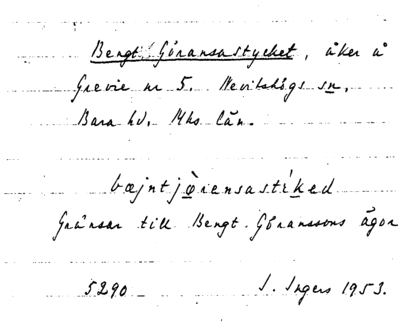 Bengt Göransastycket, åker å
Grevie nr 5. Nevitshögs sn,
Bara hd. Mhs län.
bæjntjø̀rensastíked
Gränsar till Bengt Göranssons ägor
5290 I. Ingers 1953.